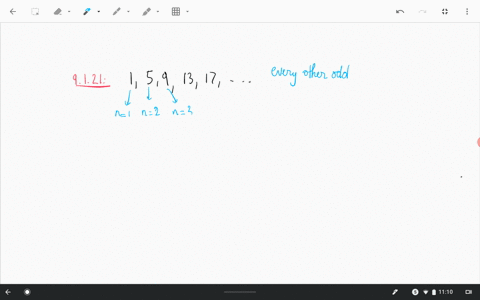 9.1.21: 1, 5, 9, 13, 17, ... every other odd
n=1 n=2 n=3
11:10